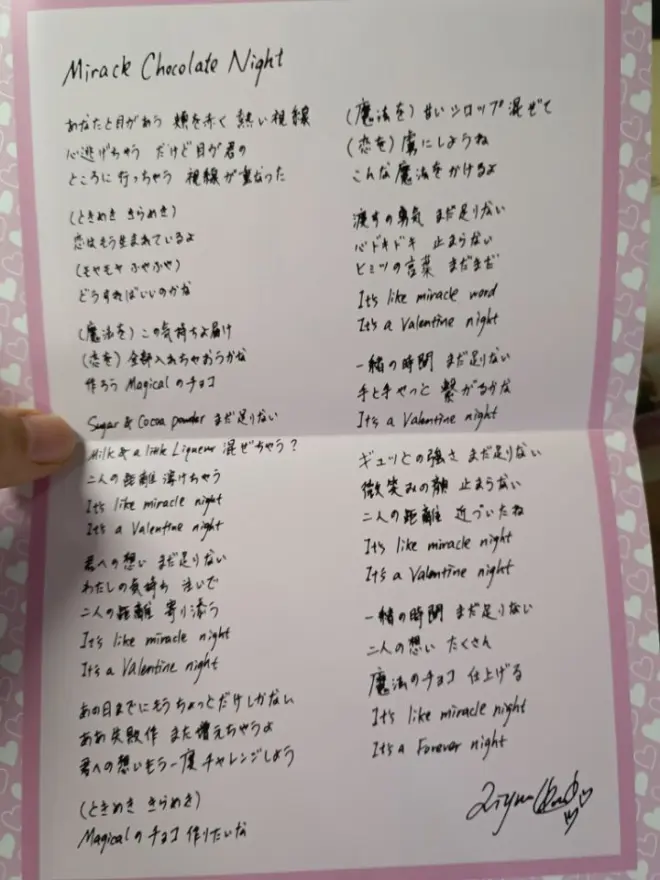 Mirack Chocolate Night
あなたと目があう 頬を赤く 熱い視線
心逃げちゃう だけど目が君の
ところに行っちゃう 視線が重なった
(ときめき きらめき)
恋はもう生まれているよ
(モヤモヤ ふやふや)
どうすればいいのかな
(魔法を) この気持ちよ届け
(恋を) 全部入れちゃおうかな
作ろう Magicalのチョコ
Sugar & Cocoa powder まだ足りない
Milk & a little Liqueur 混ぜちゃう?
二人の距離 溶けちゃう
It's like miracle night
It's a Valentine night
君への想い まだ足りない
わたしの気持ち 注いで
二人の距離 寄り添う
It's like miracle night
It's a Valentine night
あの日までにもうちょっとだけしかない
ああ失敗作 また増えちゃうよ
君への想いもう一度チャレンジしよう
(ときめき きらめき)
Magicalのチョコ 作りたいな
(魔法を) 甘いシロップ 混ぜて
(恋を) 虜にしようね
こんな魔法をかけるよ
渡すの勇気 まだ足りない
心ドキドキ 止まらない
ヒミツの言葉 まだまだ
It's like miracle word
It's a Valentine night
一緒の時間 まだ足りない
手と手やっと 繋がるかな
It's a Valentine night
ギュッとの強さ まだ足りない
微笑みの顔 止まらない
二人の距離 近づいたね
It's like miracle night
It's a Valentine night
一緒の時間 まだ足りない
二人の想い たくさん
魔法のチョコ 仕上げる
It's like miracle night
It's a Forever night